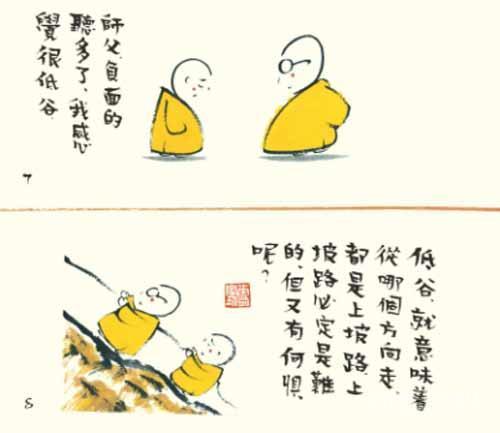 師父,負面的
聽多了,我感
覺很低谷
7
低谷,就意味着
從哪個方向走,
都是上坡路,上
坡路必定是難
的,但又有何懼
呢?
8